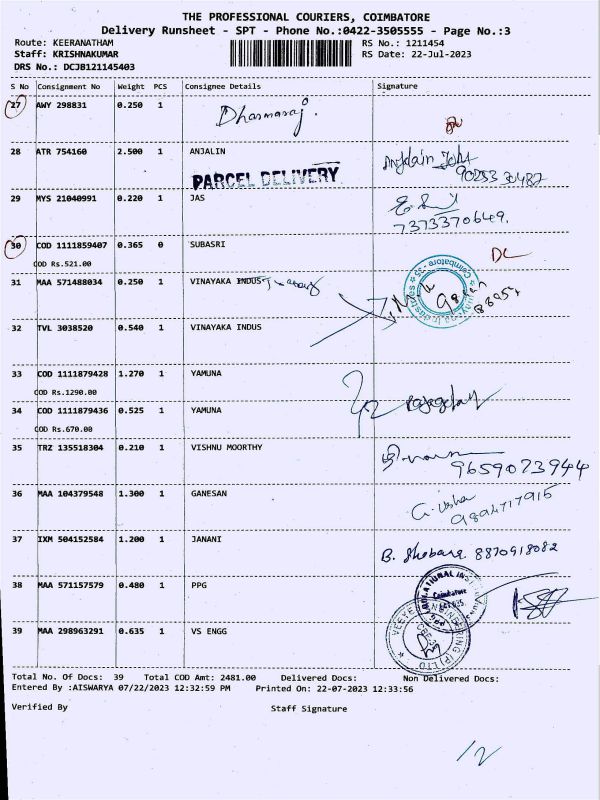 THE PROFESSIONAL COURIERS, COIMBATORE
Delivery Runsheet - SPT - Phone No.:0422-3505555 - Page No.:3
Route: KEERANATHAM RS No.: 1211454
Staff: KRISHNAKUMAR RS Date: 22-Jul-2023
DRS No.: DCJB121145403
S No Consignment No Weight PCS Consignee Details Signature
27 AWY 298831 0.250 1 Dharmaraj.
28 ATR 754160 2.500 1 ANJALIN
PARCEL DELIVERY
29 MYS 21040991 0.220 1 JAS
7373370649.
30 COD 1111859407 0.365 0 SUBASRI DL
COD Rs.521.00
31 MAA 571488034 0.250 1 VINAYAKA INDUS
32 TVL 3038520 0.540 1 VINAYAKA INDUS
33 COD 1111879428 1.270 1 YAMUNA
COD Rs.1290.00
34 COD 1111879436 0.525 1 YAMUNA
COD Rs.670.00
35 TRZ 135518304 0.210 1 VISHNU MOORTHY
9659073944
36 MAA 104379548 1.300 1 GANESAN G. Usha
9894717915
37 IXM 504152584 1.200 1 JANANI B. Shobana 8870918082
38 MAA 571157579 0.480 1 PPG
Coimbatore
39 MAA 298963291 0.635 1 VS ENGG
Total No. Of Docs: 39 Total COD Amt: 2481.00 Delivered Docs: Non Delivered Docs:
Entered By :AISWARYA 07/22/2023 12:32:59 PM Printed On: 22-07-2023 12:33:56
Verified By Staff Signature
12